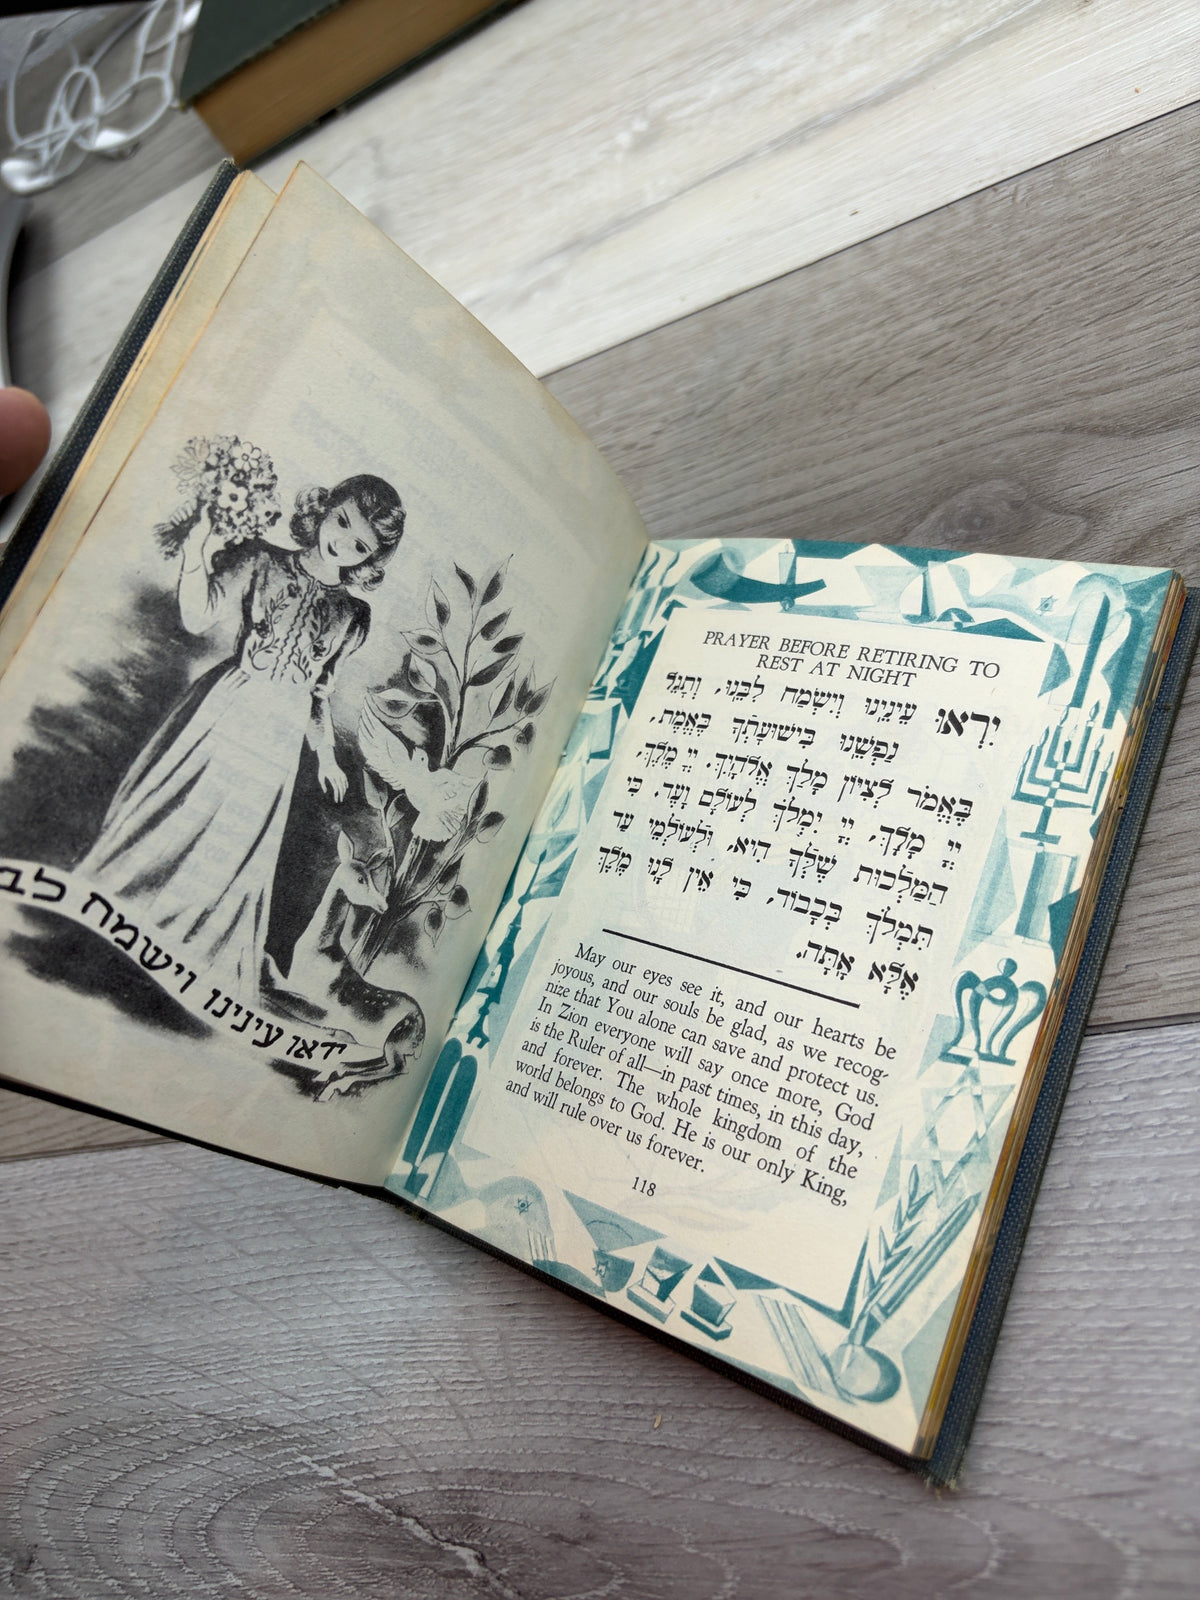 יראו עינינו וישמח לב
PRAYER BEFORE RETIRING TO
REST AT NIGHT
יִרְאוּ עֵינֵֽינוּ וְיִשְׂמַח לִבֵּֽנוּ, וְתָגֵל
נַפְשֵֽׁנוּ בִּישׁוּעָתְךָ בֶּאֱמֶת,
בֶּאֱמֹר לְצִיּוֹן מָלַךְ אֱלֹהָֽיִךְ. יְיָ מֶֽלֶךְ,
יְיָ מָלָךְ, יְיָ יִמְלֹךְ לְעוֹלָם וָעֶד. כִּי
הַמַּלְכוּת שֶׁלְּךָ הִיא, וּלְעֽוֹלְמֵי עַד
תִּמְלֹךְ בְּכָבוֹד, כִּי אֵין לָֽנוּ מֶֽלֶךְ
אֶלָּא אָֽתָּה.
May our eyes see it, and our hearts be
joyous, and our souls be glad, as we recog-
nize that You alone can save and protect us.
In Zion everyone will say once more, God
is the Ruler of all—in past times, in this day,
and forever. The whole kingdom of the
world belongs to God. He is our only King,
and will rule over us forever.
118